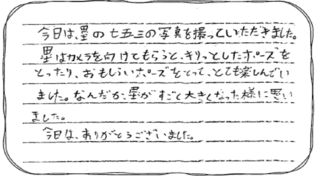 今日は、星の七五三の写真を撮っていただきました。
星はカメラを向けてもらうと、キリっとしたポーズを
とったり、おもしろいポーズをとって、とても楽しんでい
ました。なんだか、星がすごく大きくなった様に思い
ました。
今日は、ありがとうございました。